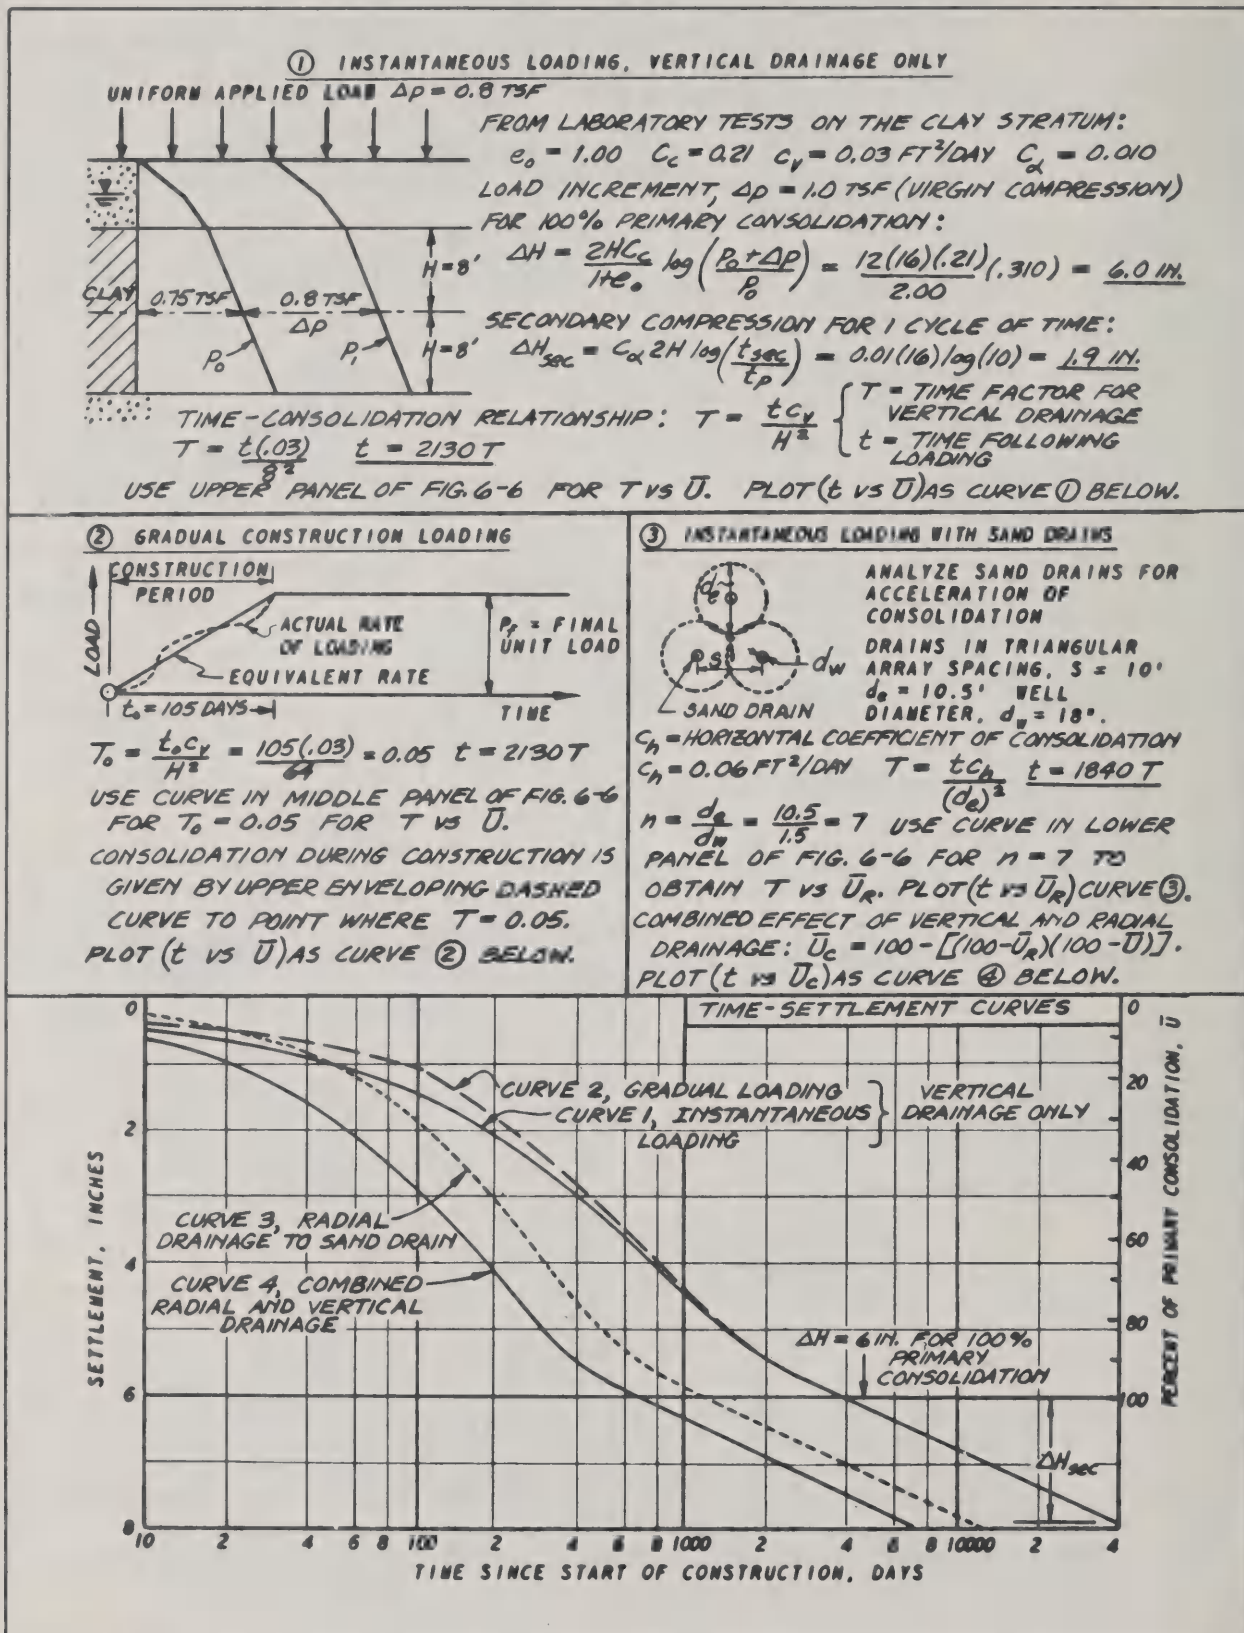 ① INSTANTANEOUS LOADING, VERTICAL DRAINAGE ONLY
UNIFORM APPLIED LOAD Δp = 0.8 TSF
FROM LABORATORY TESTS ON THE CLAY STRATUM:
e₀ = 1.00 C_c = 0.21 c_v = 0.03 FT²/DAY C_α = 0.010
LOAD INCREMENT, Δp = 1.0 TSF (VIRGIN COMPRESSION)
FOR 100% PRIMARY CONSOLIDATION:
ΔH = 2HC_c / 1+e₀ log (P₀ + Δp / P₀) = 12(16)(.21) / 2.00 (.310) = 6.0 IN.
H=8'
CLAY
0.75 TSF
0.8 TSF
Δp
P₀
P₁
H=8'
SECONDARY COMPRESSION FOR 1 CYCLE OF TIME:
ΔH_sec = C_α 2H log (t_sec / t_p) = 0.01(16) log(10) = 1.9 IN.
TIME-CONSOLIDATION RELATIONSHIP: T = tc_v / H²
T = TIME FACTOR FOR
VERTICAL DRAINAGE
t = TIME FOLLOWING
LOADING
T = t(.03) / 8² t = 2130 T
USE UPPER PANEL OF FIG. 6-6 FOR T VS Ū. PLOT (t VS Ū) AS CURVE ① BELOW.
② GRADUAL CONSTRUCTION LOADING
CONSTRUCTION
PERIOD
LOAD
ACTUAL RATE
OF LOADING
EQUIVALENT RATE
P_f = FINAL
UNIT LOAD
t₀ = 105 DAYS
TIME
T₀ = t₀c_v / H² = 105(.03) / 64 = 0.05 t = 2130 T
USE CURVE IN MIDDLE PANEL OF FIG. 6-6
FOR T₀ = 0.05 FOR T VS Ū.
CONSOLIDATION DURING CONSTRUCTION IS
GIVEN BY UPPER ENVELOPING DASHED
CURVE TO POINT WHERE T = 0.05.
PLOT (t VS Ū) AS CURVE ② BELOW.
③ INSTANTANEOUS LOADING WITH SAND DRAINS
d_e
S
d_w
SAND DRAIN
ANALYZE SAND DRAINS FOR
ACCELERATION OF
CONSOLIDATION
DRAINS IN TRIANGULAR
ARRAY SPACING, S = 10'
d_e = 10.5' WELL
DIAMETER, d_w = 18".
C_h = HORIZONTAL COEFFICIENT OF CONSOLIDATION
C_h = 0.06 FT²/DAY T = tc_h / (d_e)² t = 1840 T
n = d_e / d_w = 10.5 / 1.5 = 7 USE CURVE IN LOWER
PANEL OF FIG. 6-6 FOR n = 7 TO
OBTAIN T VS Ū_R. PLOT (t VS Ū_R) CURVE ③.
COMBINED EFFECT OF VERTICAL AND RADIAL
DRAINAGE: Ū_c = 100 - [(100-Ū_R)(100-Ū)].
PLOT (t VS Ū_c) AS CURVE ④ BELOW.
TIME-SETTLEMENT CURVES
SETTLEMENT, INCHES
0
2
4
6
8
CURVE 2, GRADUAL LOADING
CURVE 1, INSTANTANEOUS
LOADING
VERTICAL
DRAINAGE ONLY
CURVE 3, RADIAL
DRAINAGE TO SAND DRAIN
CURVE 4, COMBINED
RADIAL AND VERTICAL
DRAINAGE
ΔH = 6 IN. FOR 100%
PRIMARY
CONSOLIDATION
ΔH_sec
0
20
40
60
80
100
PERCENT OF PRIMARY CONSOLIDATION, Ū
10 2 4 6 8 100 2 4 6 8 1000 2 4 6 8 10000 2 4
TIME SINCE START OF CONSTRUCTION, DAYS